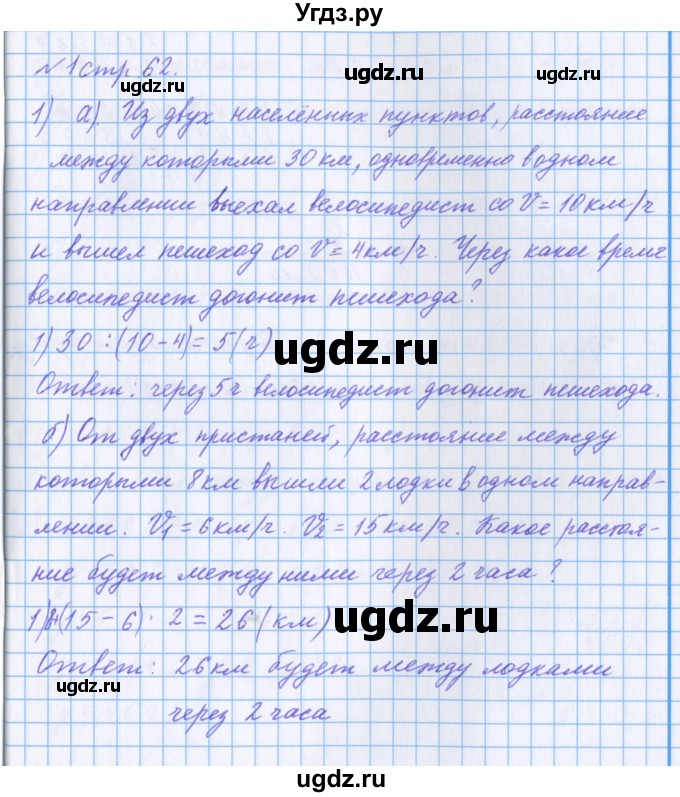 Угдз.ру
№1 стр 62.
ugdz.ru ugdz.ru
1) а). Из двух населённых пунктов, расстояние
между которыми 30 км, одновременно в одном
ugdz.ru ugdz.ru
направлении выехал велосипедист со V = 10 км/ч
и вышел пешеход со V = 4 км/ч. Через какое время
ugdz.ru ugdz.ru
велосипедист догонит пешехода?
1) 30 : (10 - 4) = 5 (ч)
ugdz.ru
Ответ: через 5 ч велосипедист догонит пешехода.
ugdz.ru
б) От двух пристаней, расстояние между
которыми 8 км вышли 2 лодки в одном направ-
ugdz.ru ugdz.ru
лении. V₁ = 6 км/ч. V₂ = 15 км/ч. Какое расстоя-
ние будет между ними через 2 часа?
1) 8+(15 - 6) · 2 = 26 (км)
ugdz.ru
Ответ: 26 км будет между лодками
ugdz.ru ugdz.ru
через 2 часа
ugdz.ru